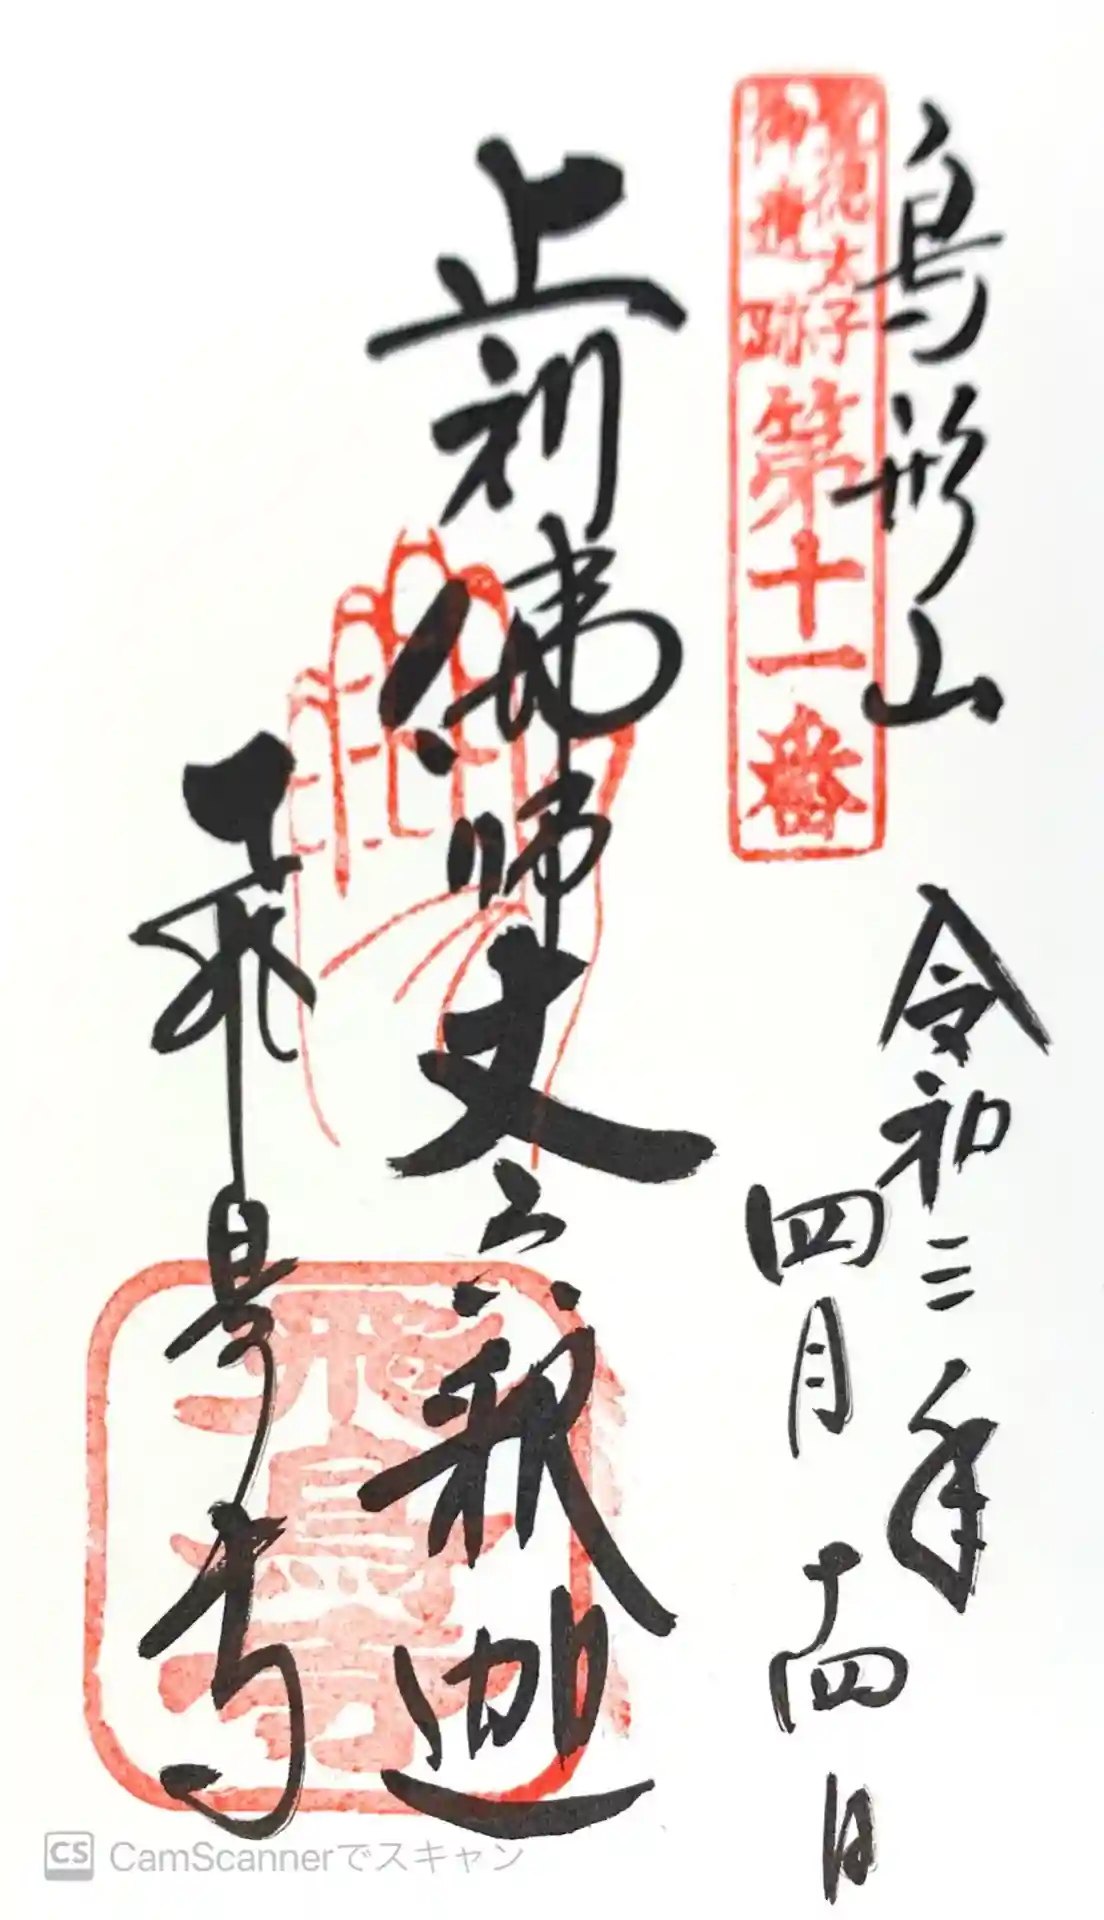 鳥形山
聖徳太子
御遺跡
第十一番
令和三年
四月十四日
止利佛師丈六釈迦
飛鳥寺
飛鳥寺
CS CamScannerでスキャン